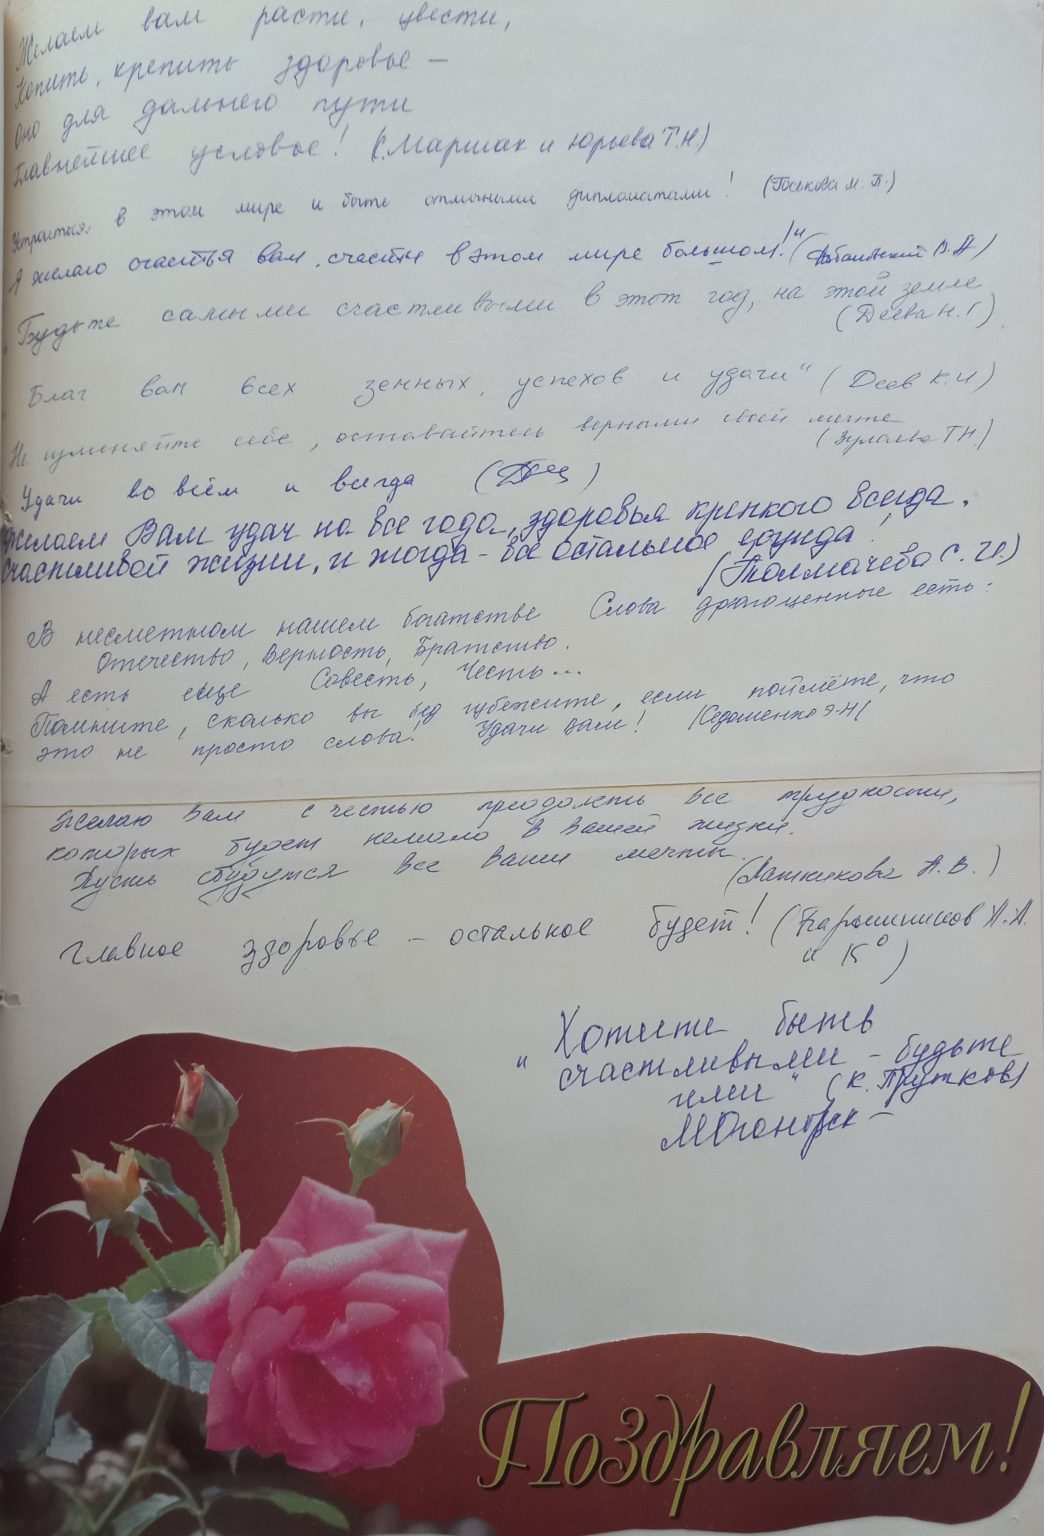 Желаем вам расти, цвести,
Копить, крепить здоровье –
Оно для дальнего пути
Главнейшее условье! (С.Маршак и Юрьева Т.Н.)
в этом мире и быть отличными дипломатами! (М. П.)
Я желаю счастья вам, счастья в этом мире большом!" (В. А)
Будьте самыми счастливыми в этот год, на этой земле
(Деева Н. Г)
Благ вам всех земных, успехов и удачи" (Деев К. И)
Не изменяйте себе, оставайтесь верными своей мечте
(Т.Н.)
Удачи во всём и всегда
Желаем Вам удач на все года, здоровья крепкого всегда.
Счастливой жизни, и тогда - все остальное ерунда!
(Толмачева С. И.)
В несметном нашем богатстве Слова драгоценные есть:
Отечество, Верность, Братство.
А есть еще Совесть, Честь...
Помните, сколько вы бед избежите, если поймёте, что
это не просто слова! Удачи вам! /Седоменко Э.Н/
Желаю Вам с честью преодолеть все трудности,
которых будет немало в Вашей жизни.
Пусть сбудутся все Ваши мечты.
(А. В.)
Главное здоровье – остальное будет! (Барышников А. А.
и К°)
" Хотите быть
счастливыми - будьте
ими " (К. Прутков)
Поздравляем!